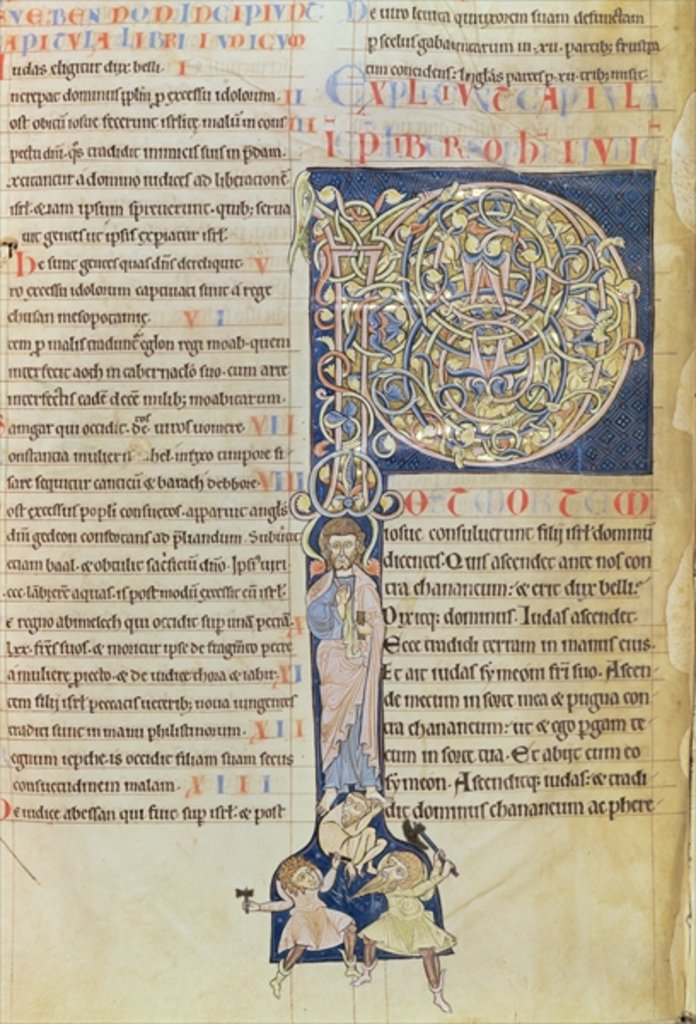 SVE BEN NON INCIPIVNT
CAPITVLA LIBRI IVDICVM
Iudas eligitur dux belli. I
Increpat dominus ipsm p excessu idolorum. II
ost obitu iosue fecerunt isrlite malu in cons III
pectu dni. qs tradidit inimicis suis in pdam.
excitantur a domino iudices ad liberatione
isrl. & eiam ipsum spreuerunt. quib; serua
uit gentes ut ipsis expiatur isrl.
He sunt gentes quas dns dereliquit V
ro excessu idolorum captiuati sunt a rege
chusan mesopotamie. VI
tem p malis tradunt eglon regi moab. quem
interfecit aoth in tabernaclo suo. cum ante
interfectis eade dece milib; moabitarum.
Samgar qui occidit de. uiros uomere. VII
onstantia mulieris hel. infixo tempore si
sare sequitur canticu & barach debbore. VIII
ost excessus popli consuetos. apparuit angls
dni gedeon confortans ad pliandum. Subuertit
etiam baal. & obtulit sacficium dno.
labiere aquas. is post modu excessit cu isrl.
e regno abimelech qui occidit sup una petra
lxx. frs suos. & moritur ipse de fragmto petre
a muliere piecto. & de iudice thola & iahir. XI
tem filii isrl peccatis ueterib; noua iungentes
traditi sunt in manu philistinorum. XII
egnum iepthe. is occidit filiam suam secus
consuetudinem malam. XIII
De iudice abessan qui fuit sup isrl. & post
De uiro leuita qui uxorem suam defunctam
p scelus gabaanitarum in. xii. partib; frustra
tim concidens. singlas partes p. xii. trib; misit.
EXPLICIVNT CAPITVL
INCIPIT LIBER SOPHTIM IVDI
POST MORTEM
iosue. consuluerunt filii isrl dominu
dicentes. Quis ascendet ante nos con
tra chananeum: & erit dux belli:
Dixitq; dominus. Iudas ascendet.
Ecce tradidi terram in manus eius.
Et ait iudas symeoni fri suo. Ascen
de mecum in sorte mea & pugna con
tra chananeum: ut & ego pgam te
cum in sorte tua. Et abiit cum eo
symeon. Ascenditq; iudas: & tradi
dit dominus chananeum ac phere